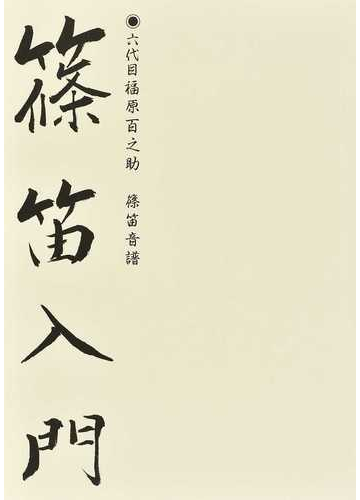 ◉六代目福原百之助 篠笛音譜
篠笛入門